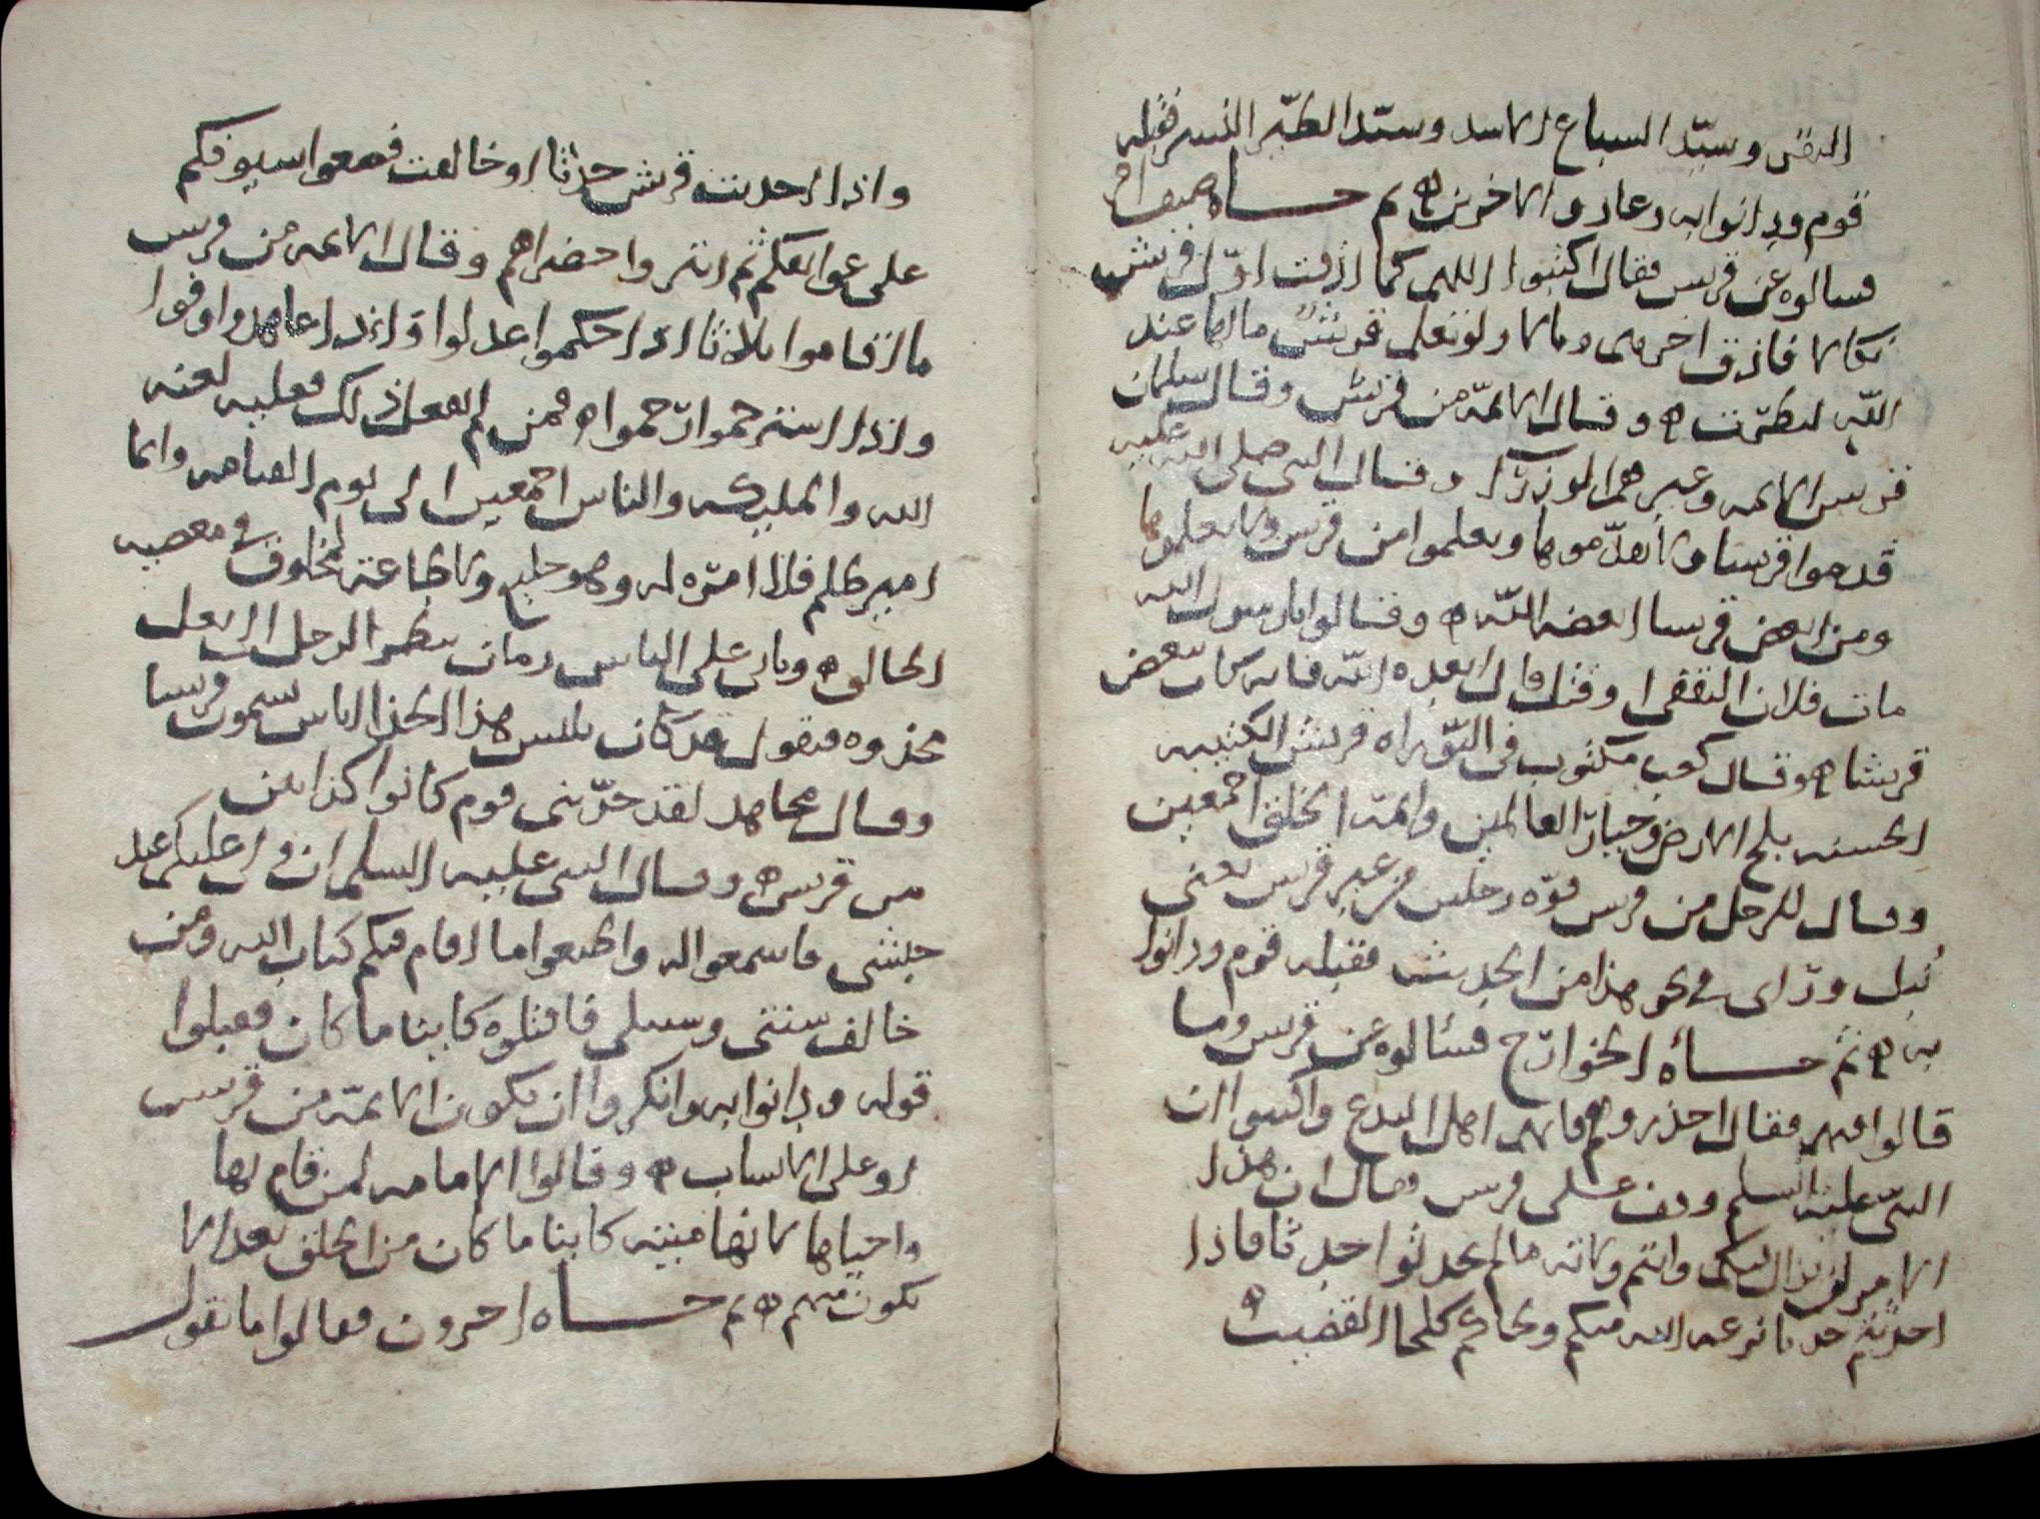 البقر وسيّد السباع الاسد وسيّد الطيّر النسر فقبله
قوم ودانوا به وعادوا الاخرين ه ثم جاه صنف اخر
فسالوه عن قريس فقال اكتبوا اللهم كما اذقت اوّل قريش
نكالا فاذق اخرهم وبالا ولو تعلم قريش ما لها عند
اللّه لبطرت ه وقال الايمّة من قريش وقال سلمان
قريس الايمه وغيرهم الوزرآ وقال النبي صلى الله عليه
قدموا قريسا ولا تقدّموها وتعلموا من قريس ولا تعلموها
ومن ابغض قريسا ابغضه اللّه ه وقالوا يا رسول الله
مات فلان الثقفي او قتل قال ابعده اللّه فانه كان يبغض
قريشا ه وقال كعب مكتوب في التوّراه قريش الكتيبه
الحسنه ملح الارض وخيار العالمين وايمّة الخلق اجمعين
وقال للرجل من قريس قوّه رجلين من غير قريس يعني
نُبل وراى في نحو هذا من الحديث فقبله قوم ودانوا
به ه ثم جاه الخوارج فسئالوه عن قريس وما
قالوا فيهم فقال احذروهم فانهم اهل البدع واكتبوا ان
النبيّ عليه السلم وقف على قريس وقال ان هذا
الامر لن يزال فيكم وانتم ولاته ما لم تحدثوا حدثا فاذا
احدثتم حدثا نزعه الله منكم ولحاكم كلحا القضيب ه
واذا احدثت قريش حدثا او خالفت فضعوا سيوفكم
على عواتقكم ثم ابتروا خضراهم وقال الايمه من قريس
ما اقاموا ثلاثا اذا حكموا عدلوا واذا عاهدوا وفوا
واذا استرحموا رحموا ه فمن لم يفعل ذلك فعليه لعنه
الله والمليكه والناس اجمعين الى يوم القيامه وايما
امير ظلم فلا امرة له وهو خليع ولا طاعة لمخلوق في معصيه
الخالق ه وياتي على الناس زمان ينظر الرجل الى نعل
محذوه فيقول قد كان يلبس هذا الحذا اناس يسمون قريسا
وقال مجاهد لقد حدّثني قوم كانوا كذابين
من قريس ه وقال النبي عليه السلم ان ولي عليكم عبد
حبشي فاسمعوا له واطيعوا ما اقام فيكم كتاب الله ومن
خالف سنتي وسبيلي فاقتلوه كاينا ما كان فقبلوا
قوله ودانوا به وانكروا ان يكون الايمّة من قريس
او على الانساب ه وقالوا الامامه لمن قام بها
واحياها لانها مبنيّه كاينا ما كان من الخلق بعد الا
يكون منهم ه ثم جاه اخرون فقالوا ما تقول